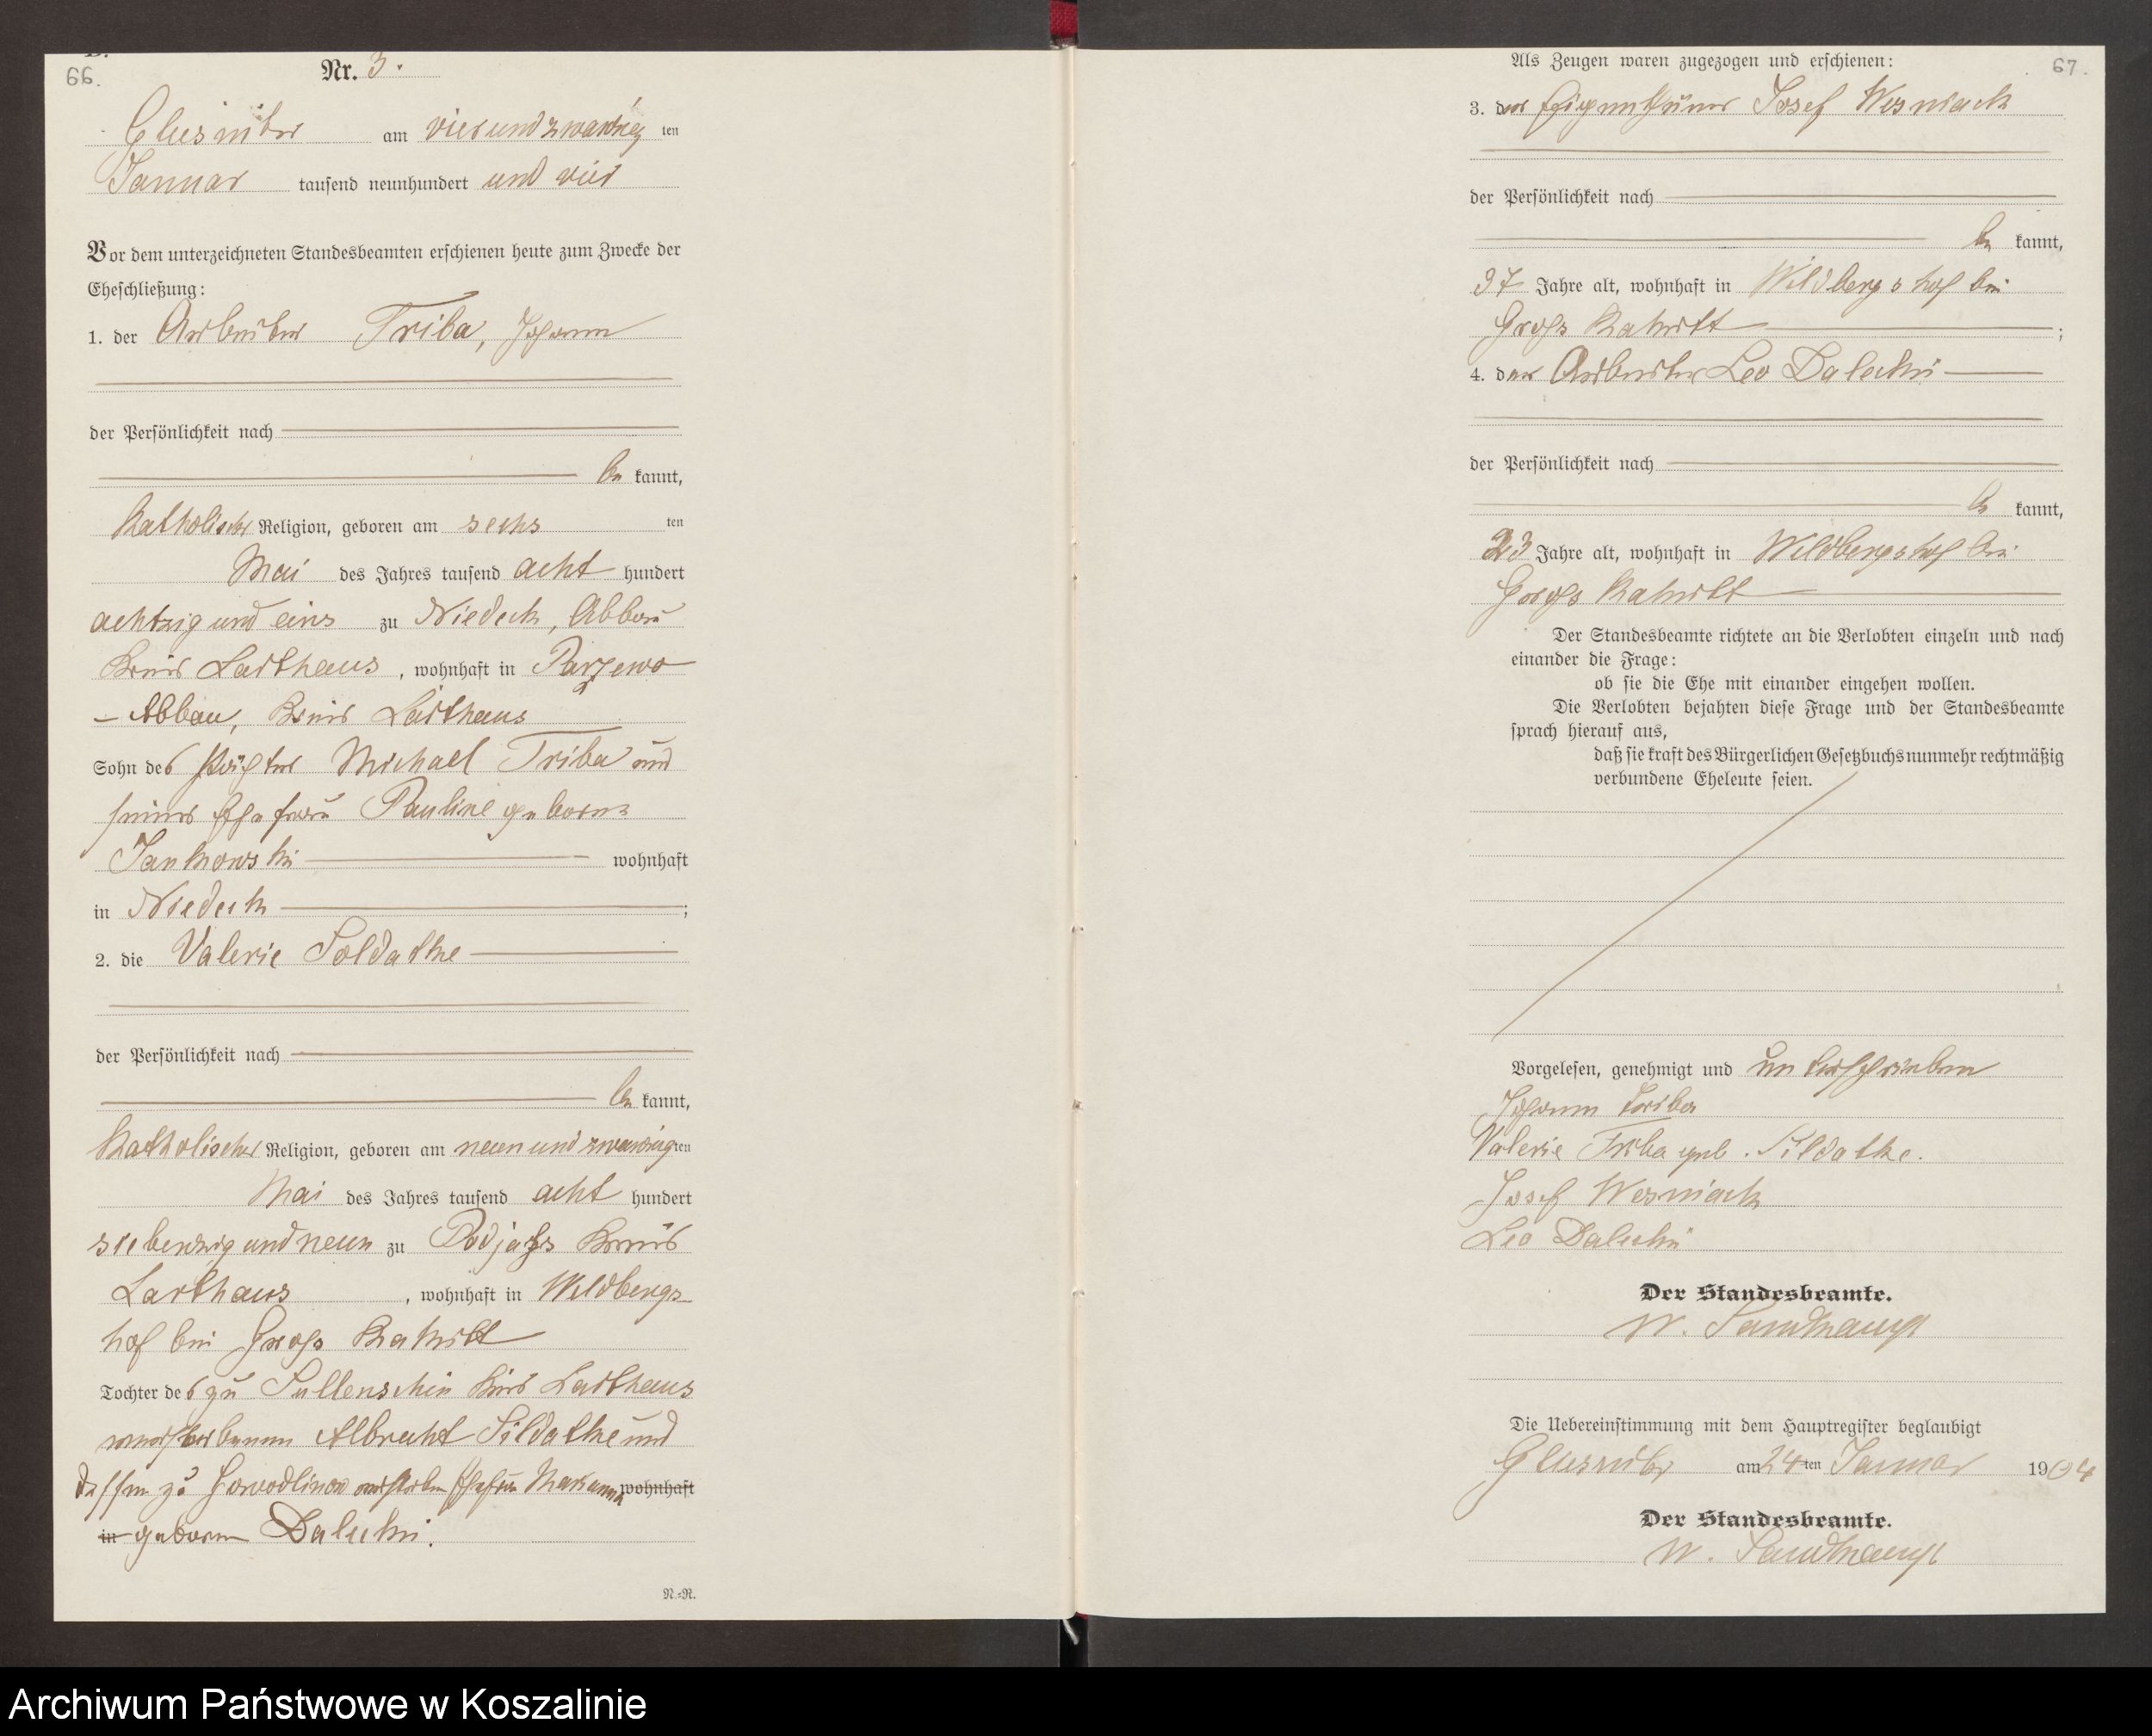 66.
Nr. 3.
Glusnitz am vierundzwanzig ten
Januar tausend neunhundert und vier
Vor dem unterzeichneten Standesbeamten erschienen heute zum Zwecke der
Eheschließung:
1. der Arbeiter Triba, Johann
der Persönlichkeit nach
be kannt,
Katholischer Religion, geboren am sechs ten
Mai des Jahres tausend acht hundert
achtzig und eins zu Niedeck, Abbau
Kreis Carthaus, wohnhaft in
- Abbau, Kreis Carthaus
Sohn des Michael Triba und
seiner Ehefrau Pauline geborene
Jankowski wohnhaft
in Niedeck ;
2. die Valerie Soldatke
der Persönlichkeit nach
be kannt,
Katholischer Religion, geboren am neunundzwanzig ten
Mai des Jahres tausend acht hundert
siebenzig und neun zu Podjass Kreis
Carthaus, wohnhaft in Wildbergs-
hof bei Gross Rakitt
Tochter des zu Sullenschin Kreis Carthaus
verstorbenen Albrecht Sildatke und
dessen zu verstorbenen Ehefrau Marianna wohnhaft
in geborene Dalecki.
N.=R.
Als Zeugen waren zugezogen und erschienen:
67.
3. der Eigenthümer Josef Wesniack
der Persönlichkeit nach
be kannt,
37 Jahre alt, wohnhaft in Wildbergshof bei
Gross Rakitt ;
4. der Arbeiter Leo Dalecki
der Persönlichkeit nach
be kannt,
23 Jahre alt, wohnhaft in Wildbergshof bei
Gross Rakitt
Der Standesbeamte richtete an die Verlobten einzeln und nach
einander die Frage:
ob sie die Ehe mit einander eingehen wollen.
Die Verlobten bejahten diese Frage und der Standesbeamte
sprach hierauf aus,
daß sie kraft des Bürgerlichen Gesetzbuchs nunmehr rechtmäßig
verbundene Eheleute seien.
Vorgelesen, genehmigt und unterschrieben
Johann Triba
Valerie Triba geb. Sildatke.
Josef Wesniack
Leo Dalecki
Der Standesbeamte.
W.
Die Uebereinstimmung mit dem Hauptregister beglaubigt
Glusnitz am 24 ten Januar 1904
Der Standesbeamte.
W.
Archiwum Państwowe w Koszalinie